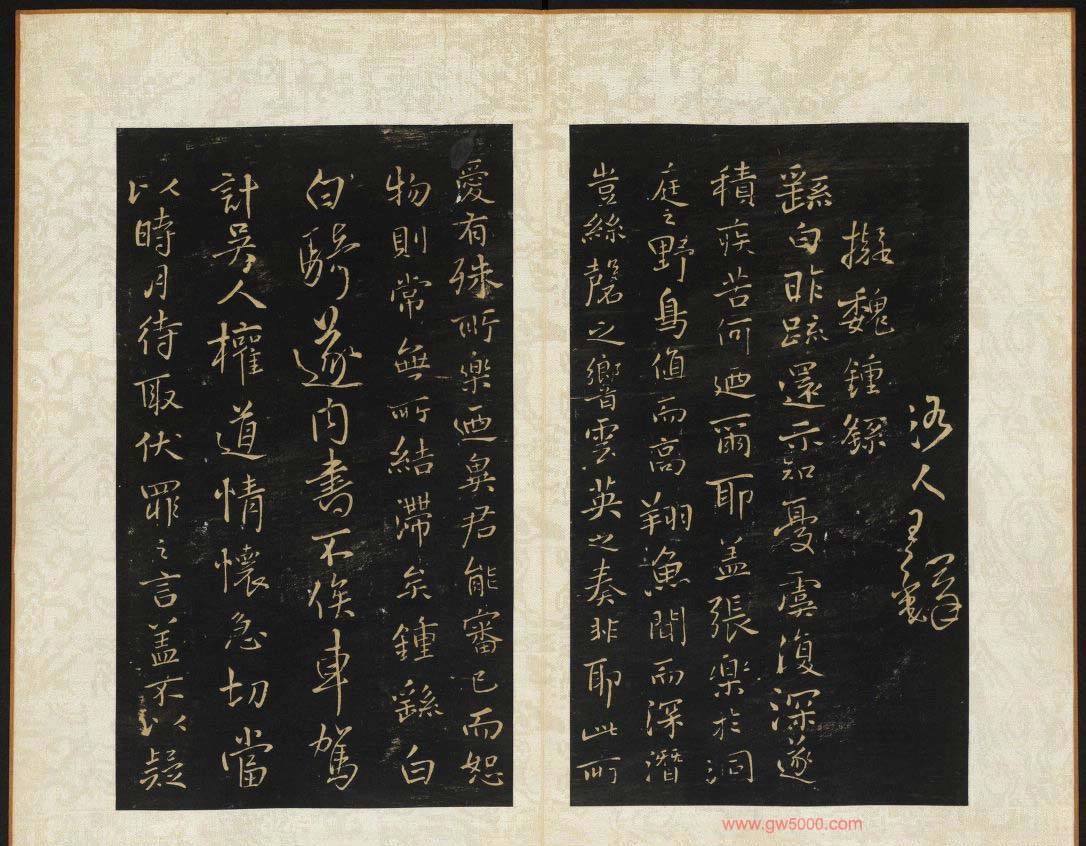 洛人王鐸
擬魏鍾繇
繇白昨疏還示知憂虞復深遂
積疾苦何迺爾耶蓋張樂於洞
庭之野鳥值而高翔漁聞而深潛
豈絲磬之響雲英之奏非耶此所
愛有殊所樂迺異君能審已而恕
物則常無所結滯矣鍾繇白
白騎遂內書不俟車駕
計吳人權道情懷急切當
以時月待取伏罪之言蓋不以疑
www.gw5000.com